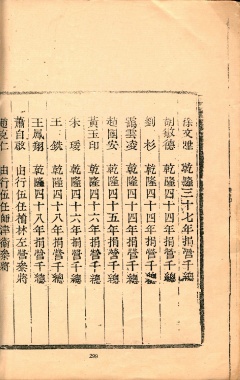 徐文雅 乾隆三十七年捐營千總
胡敏德 乾隆四十四年捐營千總
劉杉 乾隆四十四年捐營千總
龔雲凌 乾隆四十四年捐營千總
趙國安 乾隆四十五年捐營千總
黃玉印 乾隆四十六年捐營千總
朱瑗 乾隆四十六年捐營千總
王鉄 乾隆四十八年捐營千總
王鳳翔 乾隆四十八年捐營千總
蕭自啟 由行伍任榆林左營叅將
趙克仁 由行伍任 津衛叅將
299